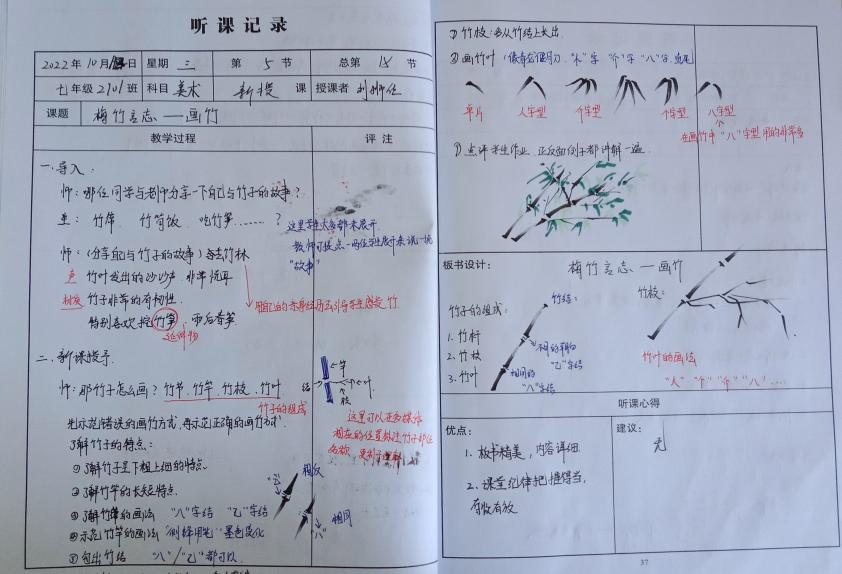 听课记录
2022年10月 日 星期 三 第 5 节 总第 15 节
七年级2101班 科目 美术 新授 课 授课者
课题 梅竹言志 — 画竹
教学过程 评注
一.导入:
师:哪位同学与老师分享一下自己与竹子的故事?
生: 竹筒饭 吃竹笋……?
这里学生大多都未展开
教师可提点一两位学生展开来说一说
"故事"
师:(分享自己与竹子的故事)每去竹林
声 竹叶发出的沙沙声 非常悦耳
竹子非常的有韧性
用自己的亲身经历去引导学生感受竹
特别喜欢挖竹笋 雨后春笋
二.新课授予
师:那竹子怎么画?竹节、竹竿、竹枝、竹叶
竹子的组成
竿
节
叶
枝
先示范错误的画竹方式,再示范正确的画竹方式
了解竹子的特点:
这里可以在多媒体
相应的位置标注竹子部位
名称
①了解竹子是下粗上细的特点
②了解竹竿的长短特点
③了解竹节的画法 "八"字结 "乙"字结
④示范竹竿的画法 "侧锋用笔" 墨色变化
⑤勾出竹结 "八"/"乙"都可以
相反
相同
"八"
①竹枝:多从竹结上长出
②画竹叶 "人"字 "个"字 "八"字
单片 人字型 个字型 个字型 八字型
在画竹中"八"字型用的非常多
①点评学生作业 正反面例子都讲解一遍
板书设计: 梅竹言志 — 画竹
竹子的组成: 竹结: 竹枝:
1.竹杆
2.竹枝
3.竹叶
"乙"字结
相同的
"八"字结
竹叶的画法
"人" "个" "介" "八"……
听课心得
优点: 建议:
1、板书精美,内容详细 无
2、课堂纪律把握得当,
有收有放
37